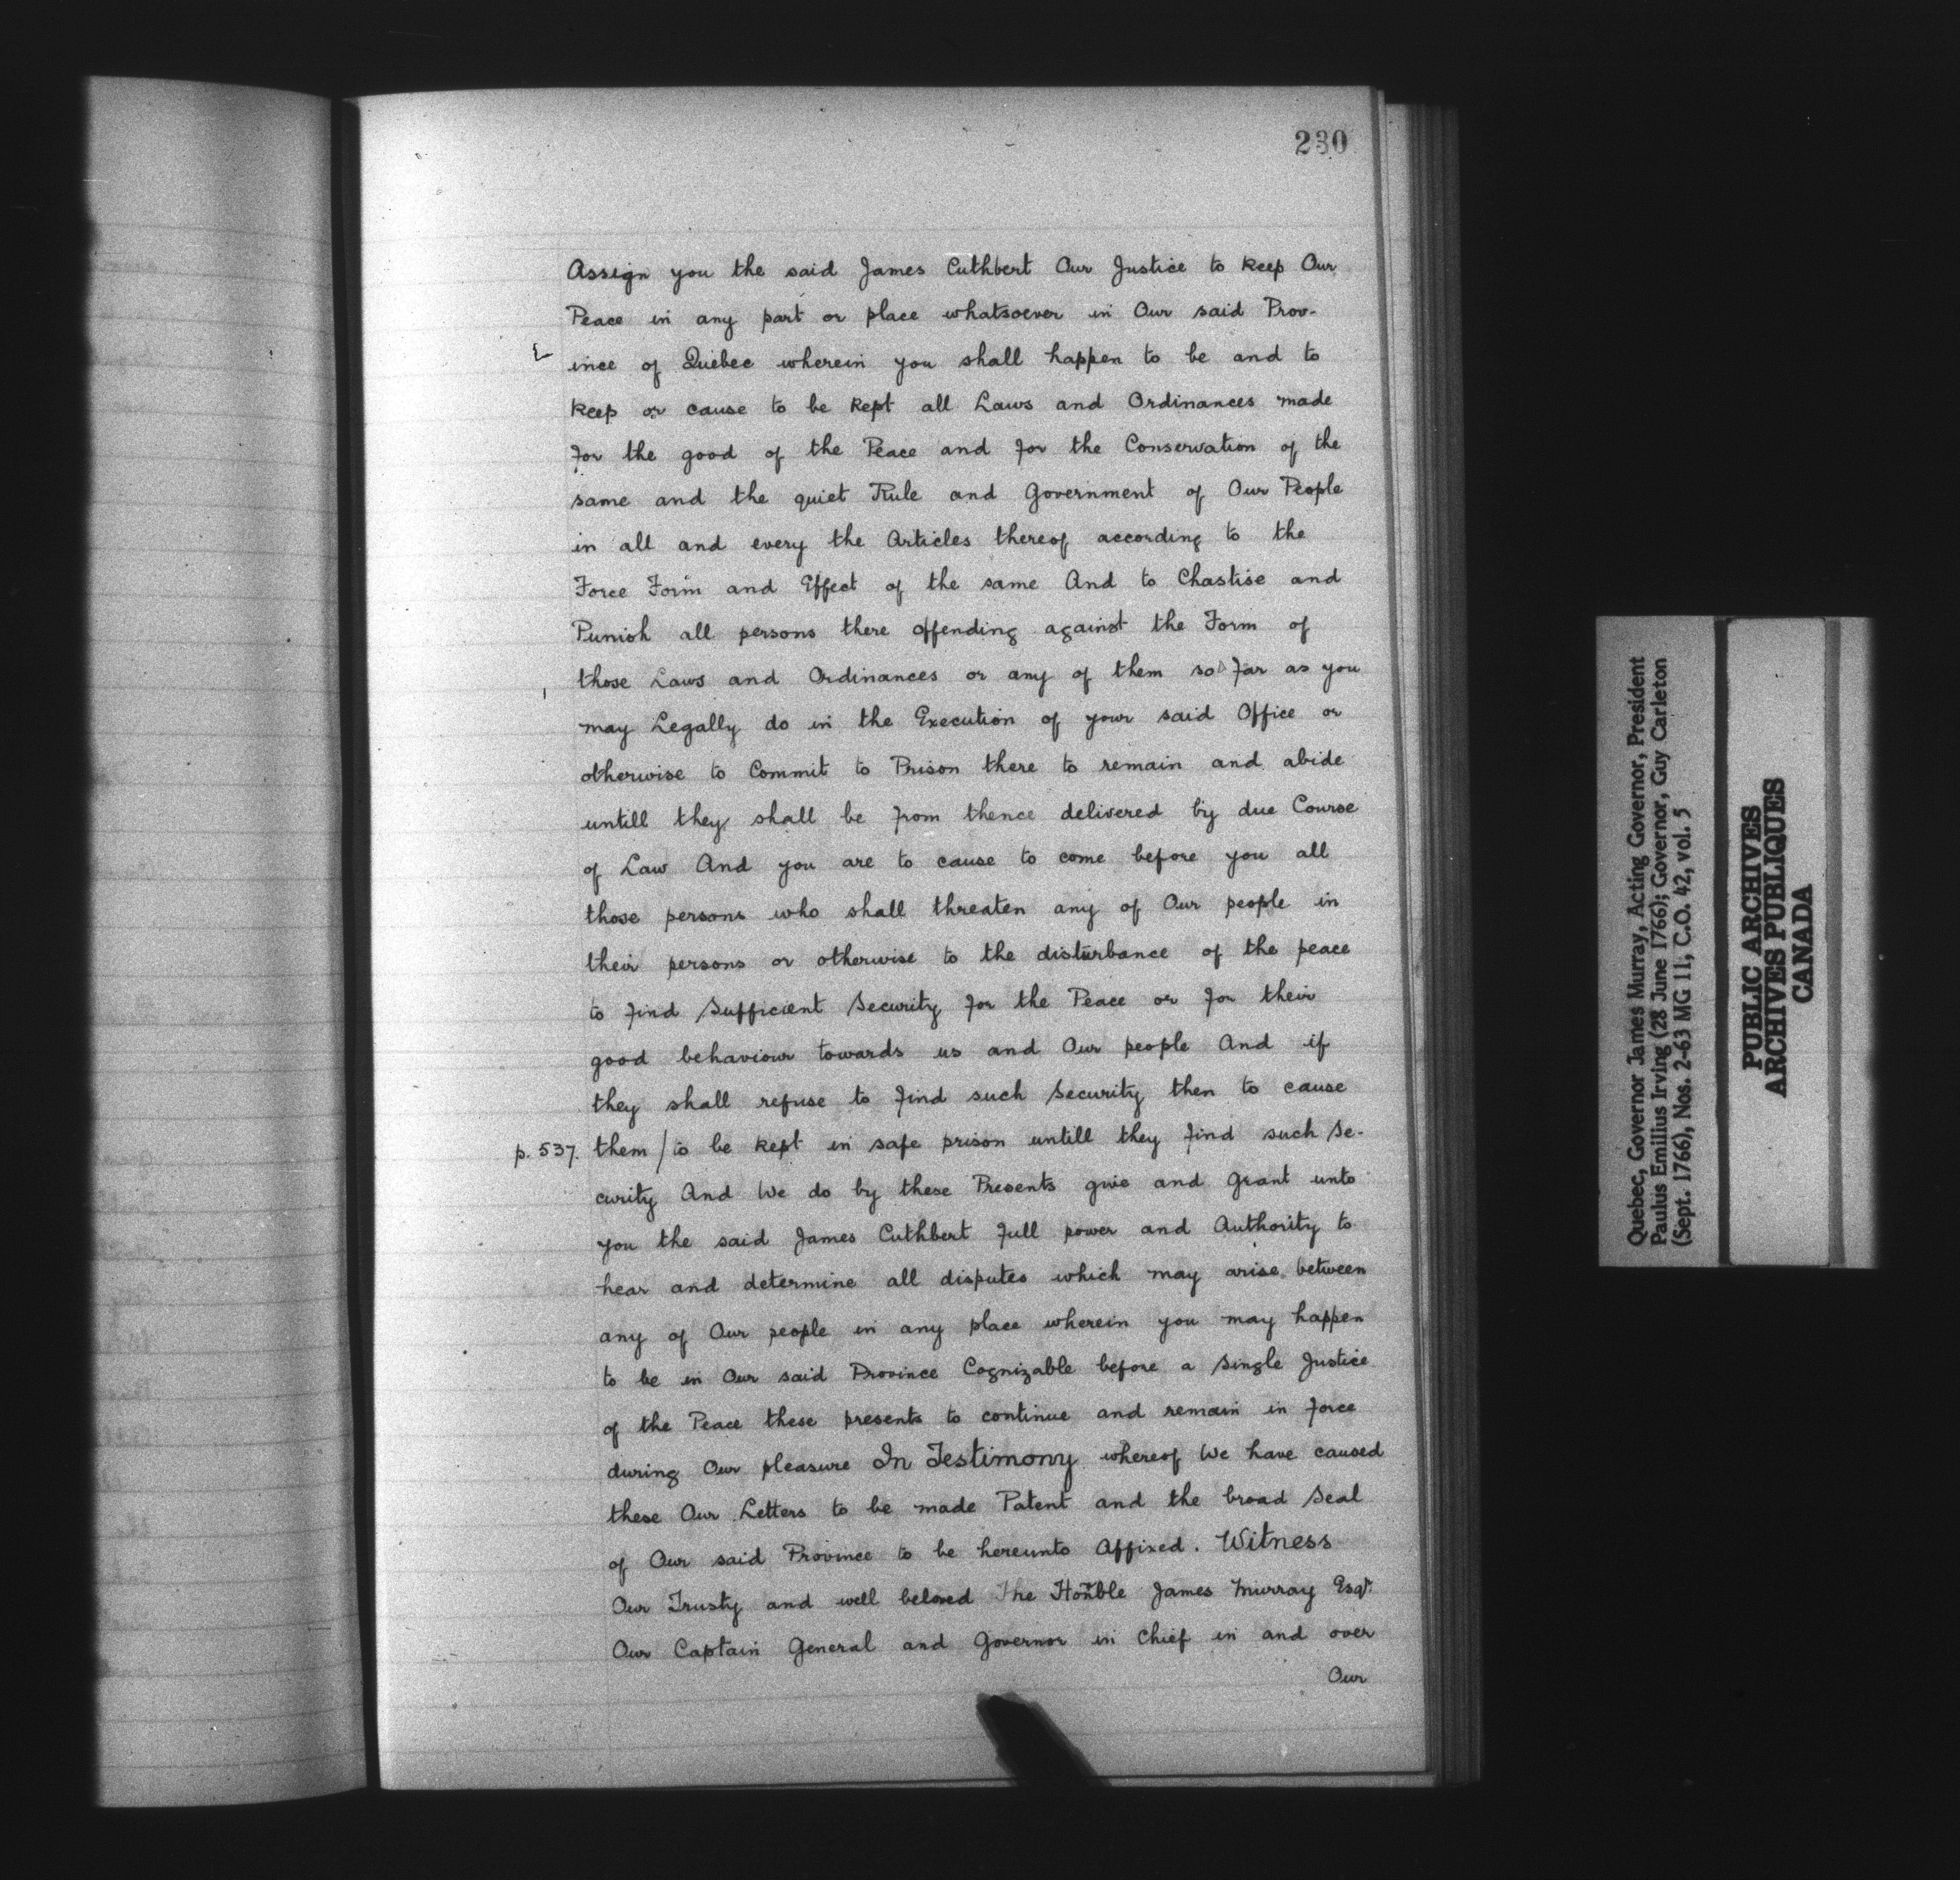 230
Assign you the said James Cuthbert Our Justice to keep Our
Peace in any part or place whatsoever in Our said Prov-
ince of Quebec wherein you shall happen to be and to
keep or cause to be kept all Laws and Ordinances made
for the good of the Peace and for the Conservation of the
same and the quiet Rule and Government of Our People
in all and every the Articles thereof according to the
Force Form and Effect of the same And to Chastise and
Punish all persons there offending against the Form of
those Laws and Ordinances or any of them so far as you
may Legally do in the Execution of your said Office or
otherwise to Commit to Prison there to remain and abide
untill they shall be from thence delivered by due Course
of Law And you are to cause to come before you all
those persons who shall threaten any of Our people in
their persons or otherwise to the disturbance of the peace
to find Sufficient Security for the Peace or for their
good behaviour towards us and Our people And if
they shall refuse to find such Security then to cause
p. 537. them / to be kept in safe prison untill they find such Se-
curity And We do by these Presents give and Grant unto
you the said James Cuthbert full power and Authority to
hear and determine all disputes which may arise between
any of Our people in any place wherein you may happen
to be in Our said Province Cognizable before a Single Justice
of the Peace these presents to continue and remain in force
during Our pleasure In Testimony whereof We have caused
these Our Letters to be made Patent and the broad Seal
of Our said Province to be hereunto Affixed. Witness
Our Trusty and well beloved The Honble James Murray Esqr.
Our Captain General and Governor in Chief in and over
Our
Quebec, Governor James Murray, Acting Governor, President
Paulus Emilius Irving (28 June 1766); Governor, Guy Carleton
(Sept. 1766), Nos. 2-63 MG 11, C.O. 42, vol. 5
PUBLIC ARCHIVES
ARCHIVES PUBLIQUES
CANADA